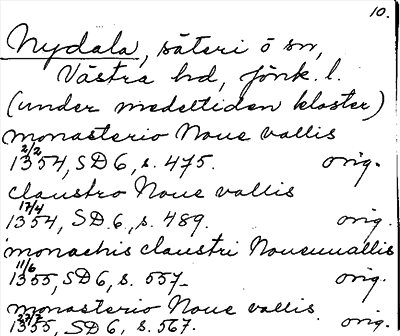 10.
Nydala, säteri o sn,
Västra hd, Jönk. l.
(under medeltiden kloster)
monasterio Noue vallis
2/2
1354, SD 6, s. 475. orig.
claustro Noue vallis
17/4
1354, SD 6, s. 489. orig.
monachis claustri Noueuuallis
11/6
1355, SD 6, s. 557. orig.
monasterio Noue vallis
1355, SD 6, s. 567. orig.